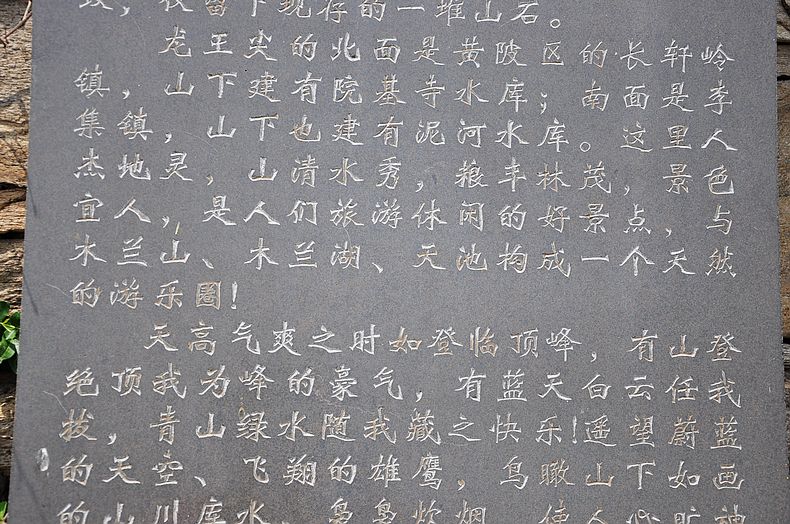 仅留下现存的一堆山石。
龙王尖的北面是黄陂区的长轩岭
镇，山下建有院基寺水库；南面是李
集镇，山下也建有泥河水库。这里人
杰地灵，山清水秀，粮丰林茂，景色
宜人，是人们旅游休闲的好景点，与
木兰山、木兰湖、天池构成一个天然
的游乐圈！
天高气爽之时如登临顶峰，有山登
绝顶我为峰的豪气，有蓝天白云任我
拔，青山绿水随我藏之快乐！遥望蔚蓝
的天空、飞翔的雄鹰，鸟瞰山下如画
的山川库水、袅袅炊烟，使人心旷神